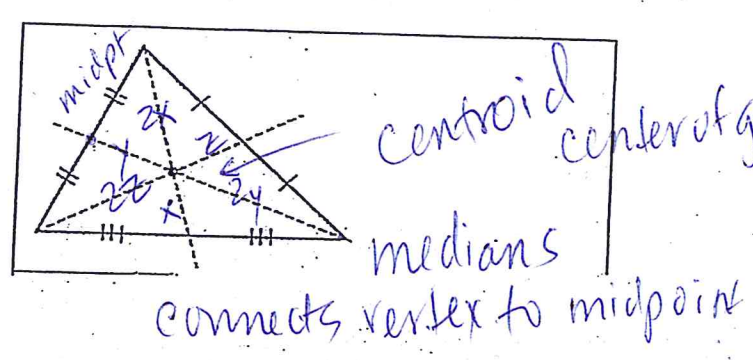 midpt
2x
z
centroid
center of g
y
2z
2y
x
medians
connects vertex to midpoint